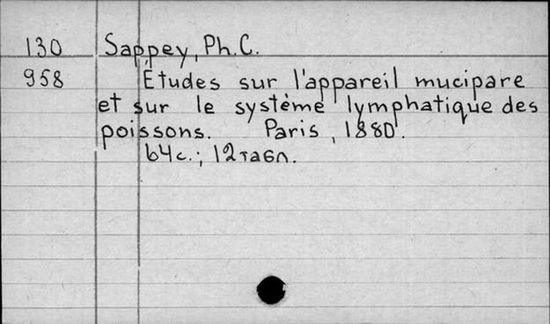 130 Sappey, Ph.C.
958 Études sur l'appareil mucipare
et sur le système lymphatique des
poissons. Paris, 1880.
64c.; 12табл.